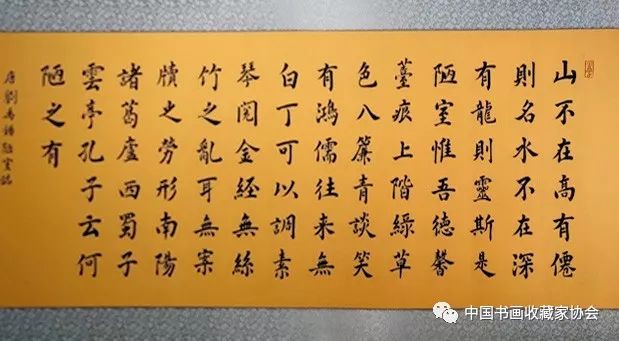 山不在高有僊
則名水不在深
有龍則靈斯是
陋室惟吾德馨
薹痕上階綠草
色入簾青談笑
有鴻儒往来無
白丁可以調素
琴閱金經無絲
竹之亂耳無案
牘之勞形南陽
諸葛廬西蜀子
雲亭孔子云何
陋之有
唐劉禹錫陋室銘
中国书画收藏家协会